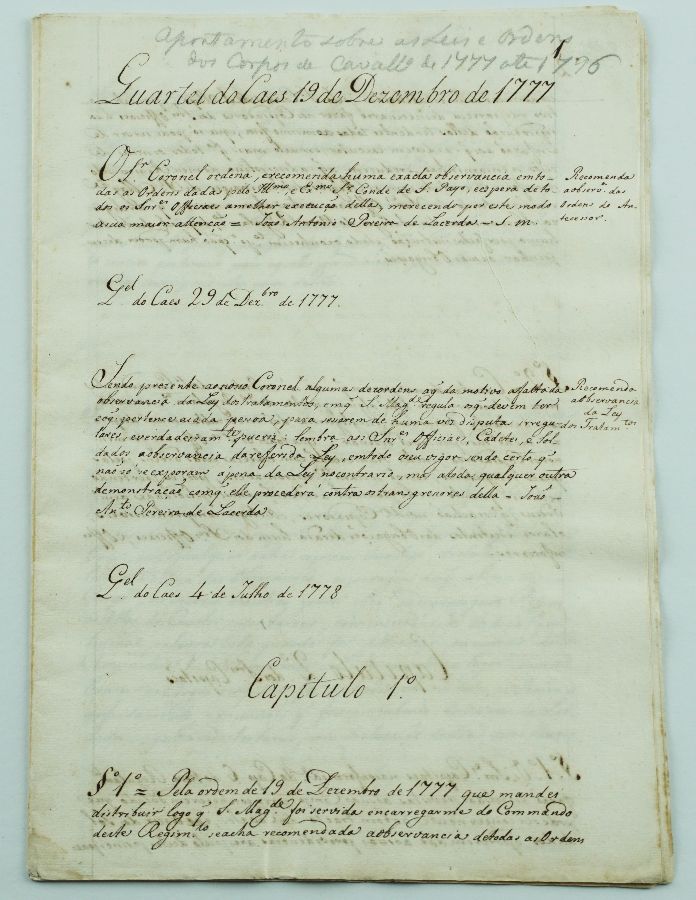 Apontamento sobre as Leis e Ordens
dos Corpos de Cavallª de 1777 ate 1796
1
Quartel do Caes 19 de Dezembro de 1777
O Sr. Coronel ordena, erecomenda huma exacta observancia emto-
das as Ordens dadas pelo Illmo, e Exmo Sr. Conde de S. Payo, eespera deto-
dos os Snres Officiaes amelhor execução della, merecendo por este modo
asua maior attenção = João Antonio Pereira de Lacerda = S. M.
Recomenda
aobserva. das
Ordens do An-
tecessor.
Qel do Caes 29 de Dezbro de 1777.
Sendo prezente aonosso Coronel algumas dezordens aq. da motivo afaltada
observancia da Ley dos tratamentos, emq. S. Magde regula oq. devem ter
eoq. pertence acada pessoa, para sessarem de huma vez disputas irregu-
lares, everdadeiramte pueris: lembra aos Snres Officiaes, Cadetes, e Sol-
dados aobservancia dareferida Ley, emtodo oseu vigor sendo certo q.
não só se exporam apena da Ley nocontrario, mas atoda, qualquer outra
demonstração comq. elle procederá contra ostransgresores della = João
Anto Pereira de Lacerda
Recomenda
aobservancia
da Ley
dos Tratamtos
Qel do Caes 4 de Julho de 1778
Capitulo 1º.
§º 1º = Pela ordem de 19 de Dezembro de 1777 que mandei
distribuir logo q. S. Magde foi servida encarregarme do Commando
deste Regimto seacha recomendada aobservancia detodas as Ordens